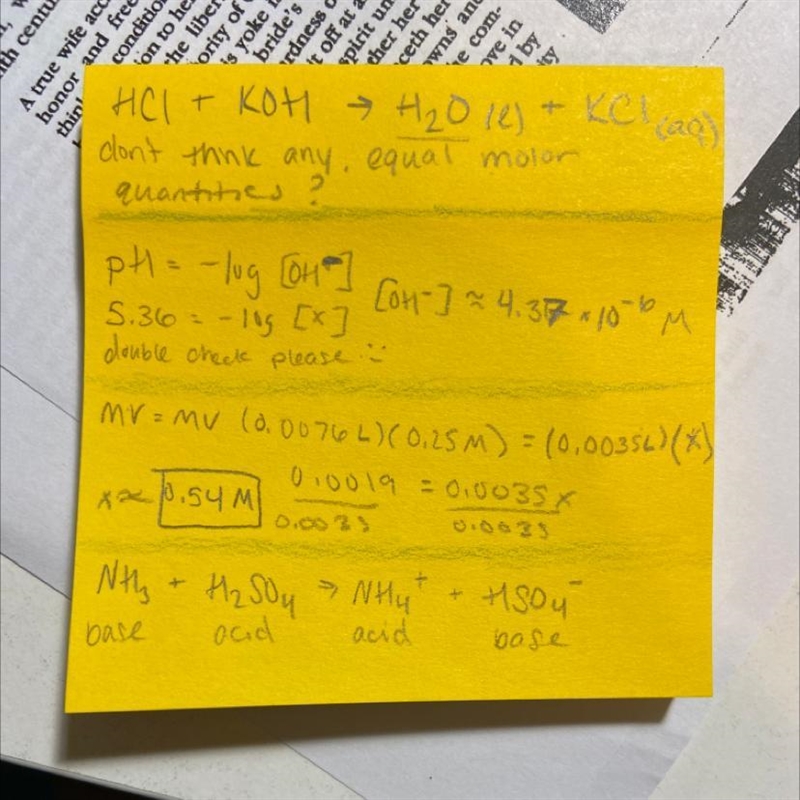 A true wife acc
honor and free
think
condition
tion to hea
the liber
ority of
s yoke i
bride's
ardness o
it off at a
spirit un
ther her
aceth her
owns' and
e com-
ove in
d by
ity
th centu
HCl + KOH → H₂O (l) + KCl (aq)
dont thnk any, equal molor
quantities?
pH = -log [OH⁻]
[OH⁻] ≈ 4.37 × 10⁻⁶ M
5.36 = -log [x]
double check please :-
MV = MV (0.0076 L)(0.25 M) = (0.0035L)(x)
x ≈ 0.54 M 0.0019 = 0.0035x
0.0035 0.0035
NH₃ + H₂SO₄ → NH₄⁺ + HSO₄⁻
base acid acid base